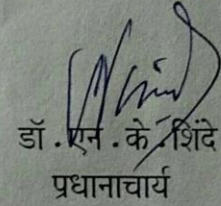 डॉ.एन.के.शिंदे
प्रधानाचार्य